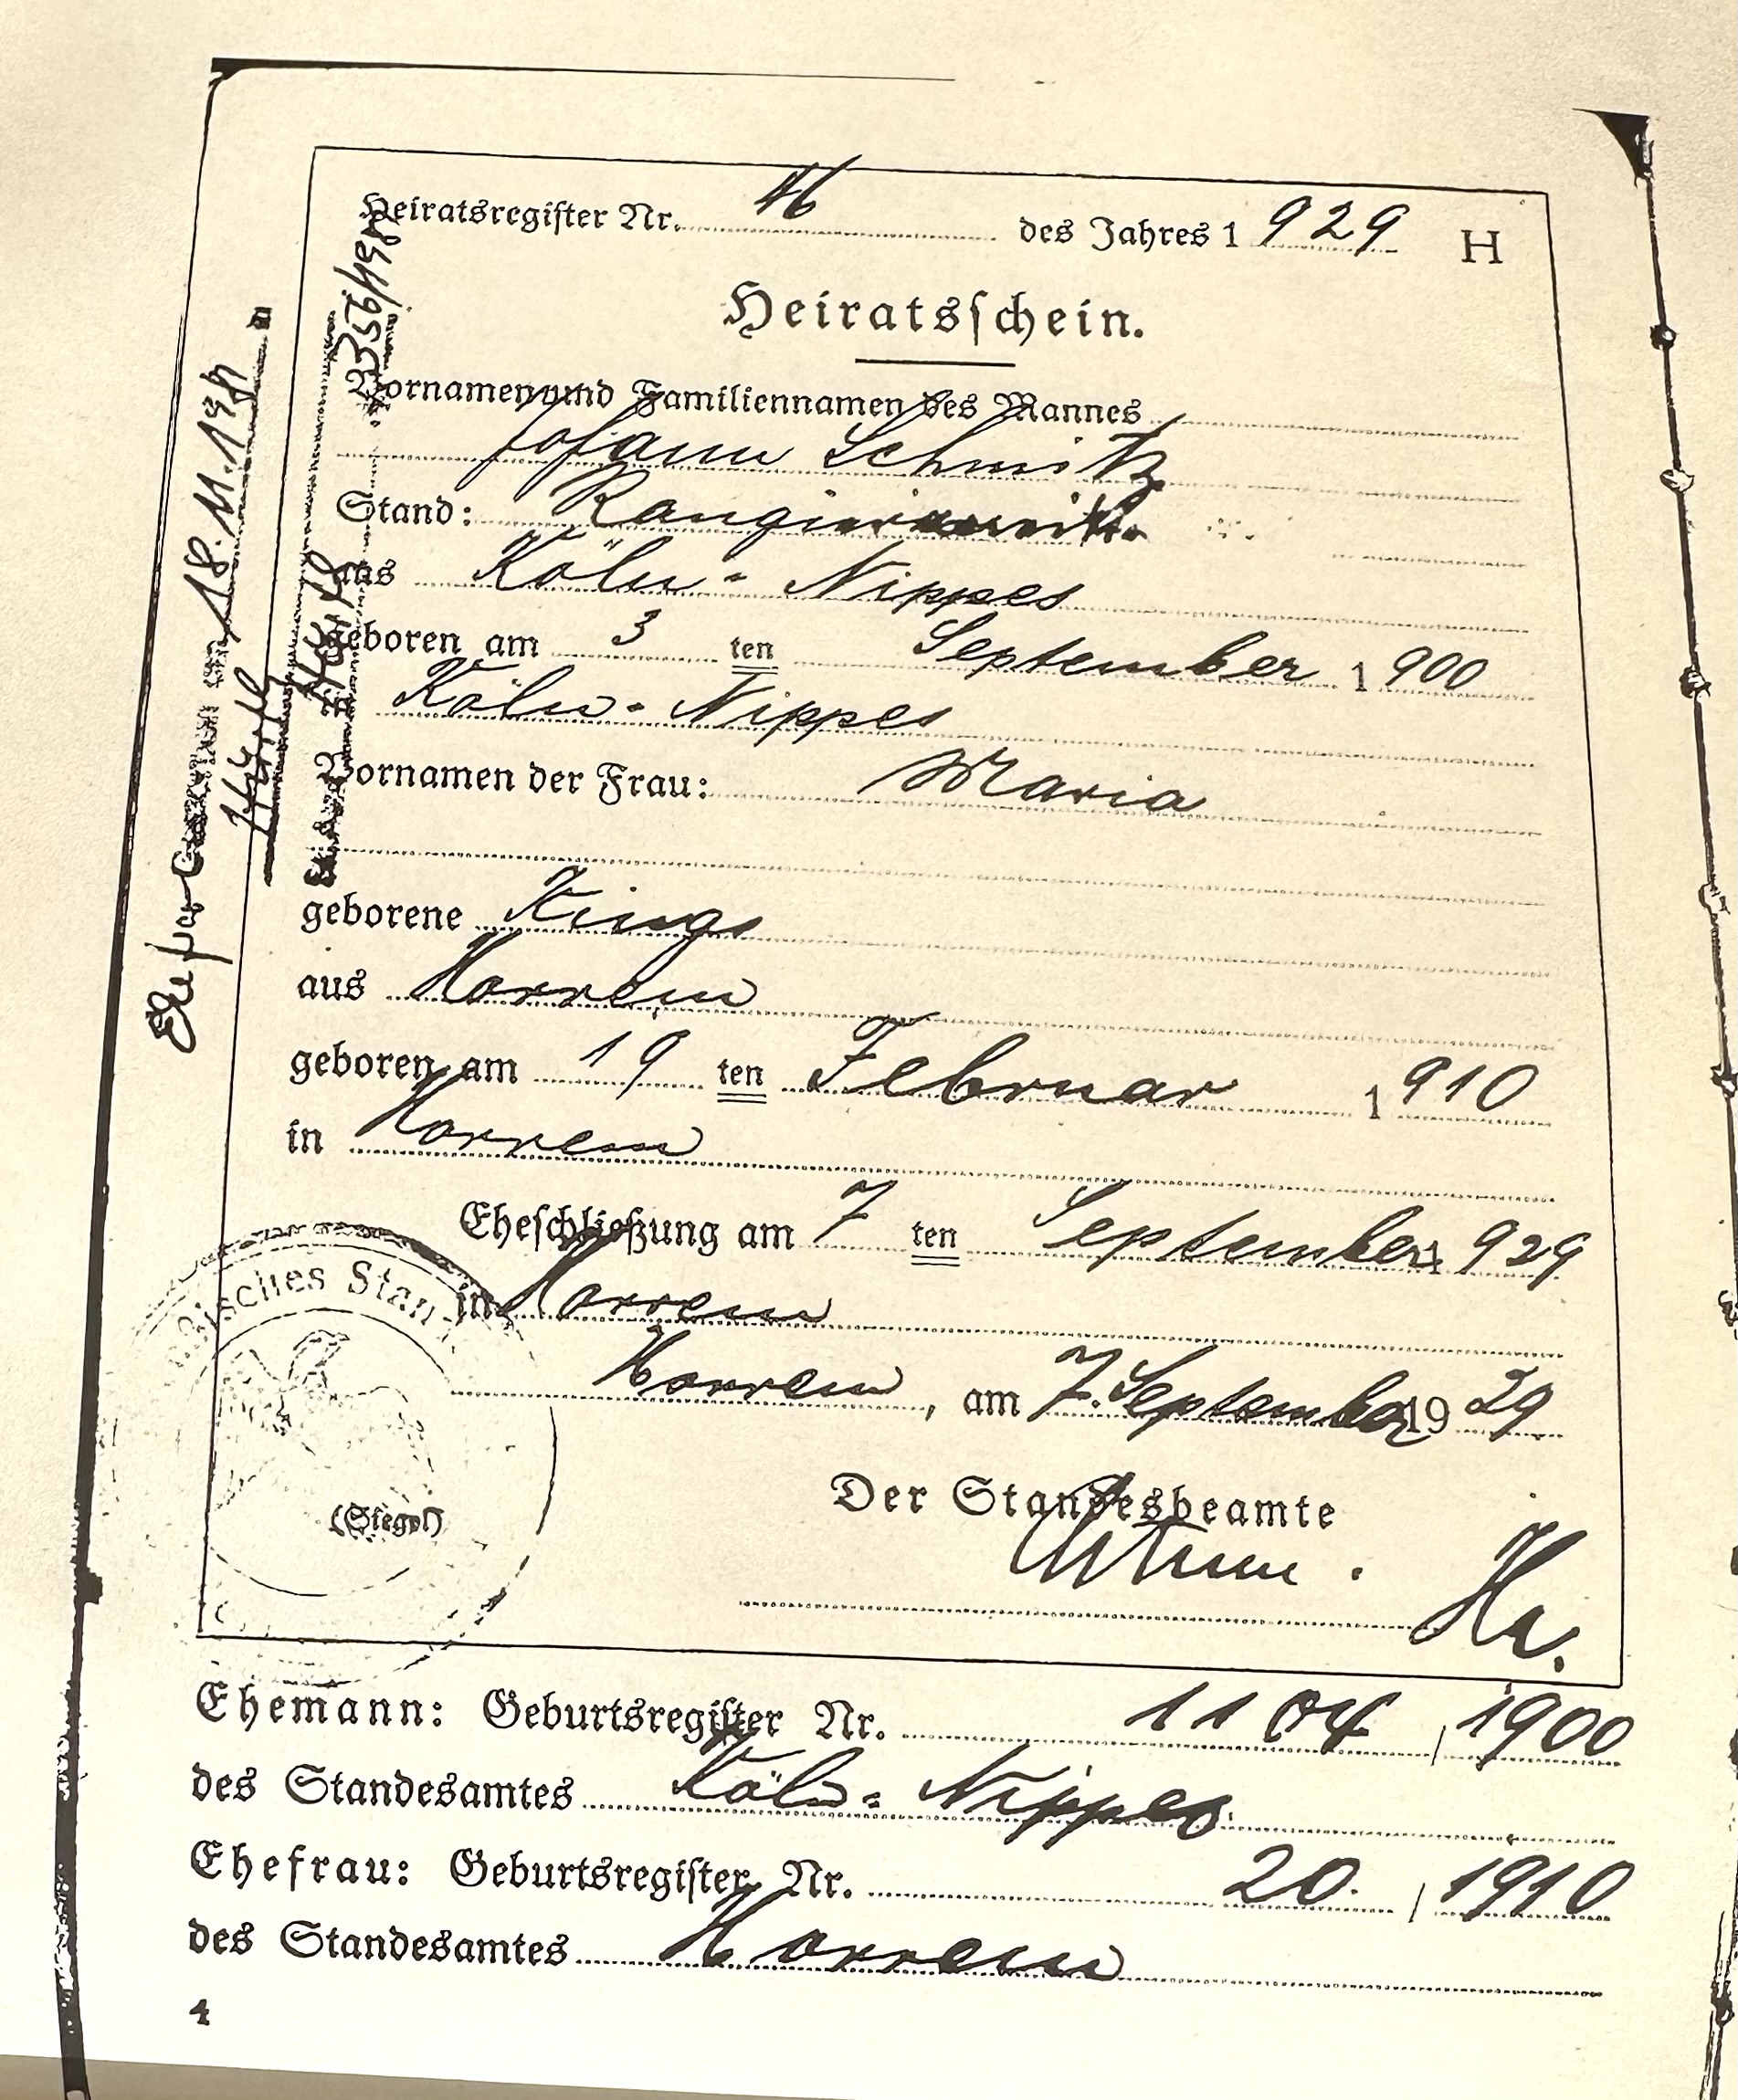 Heiratsregister Nr. 46 des Jahres 1929 H
Heiratsschein.
Vornamen und Familiennamen des Mannes
Johann Schmitz
Stand:
aus Köln-Nippes
geboren am 3 ten September 1900
Köln-Nippes
Vornamen der Frau: Maria
geborene Kings
aus Horrem
geboren am 19 ten Februar 1910
in Horrem
Eheschließung am 7 ten September 1929
in Horrem
Horrem, am 7. September 1929
Der Standesbeamte
(Siegel)
Ehemann: Geburtsregister Nr. 1104 / 1900
des Standesamtes Köln-Nippes
Ehefrau: Geburtsregister Nr. 20. / 1910
des Standesamtes Horrem
4